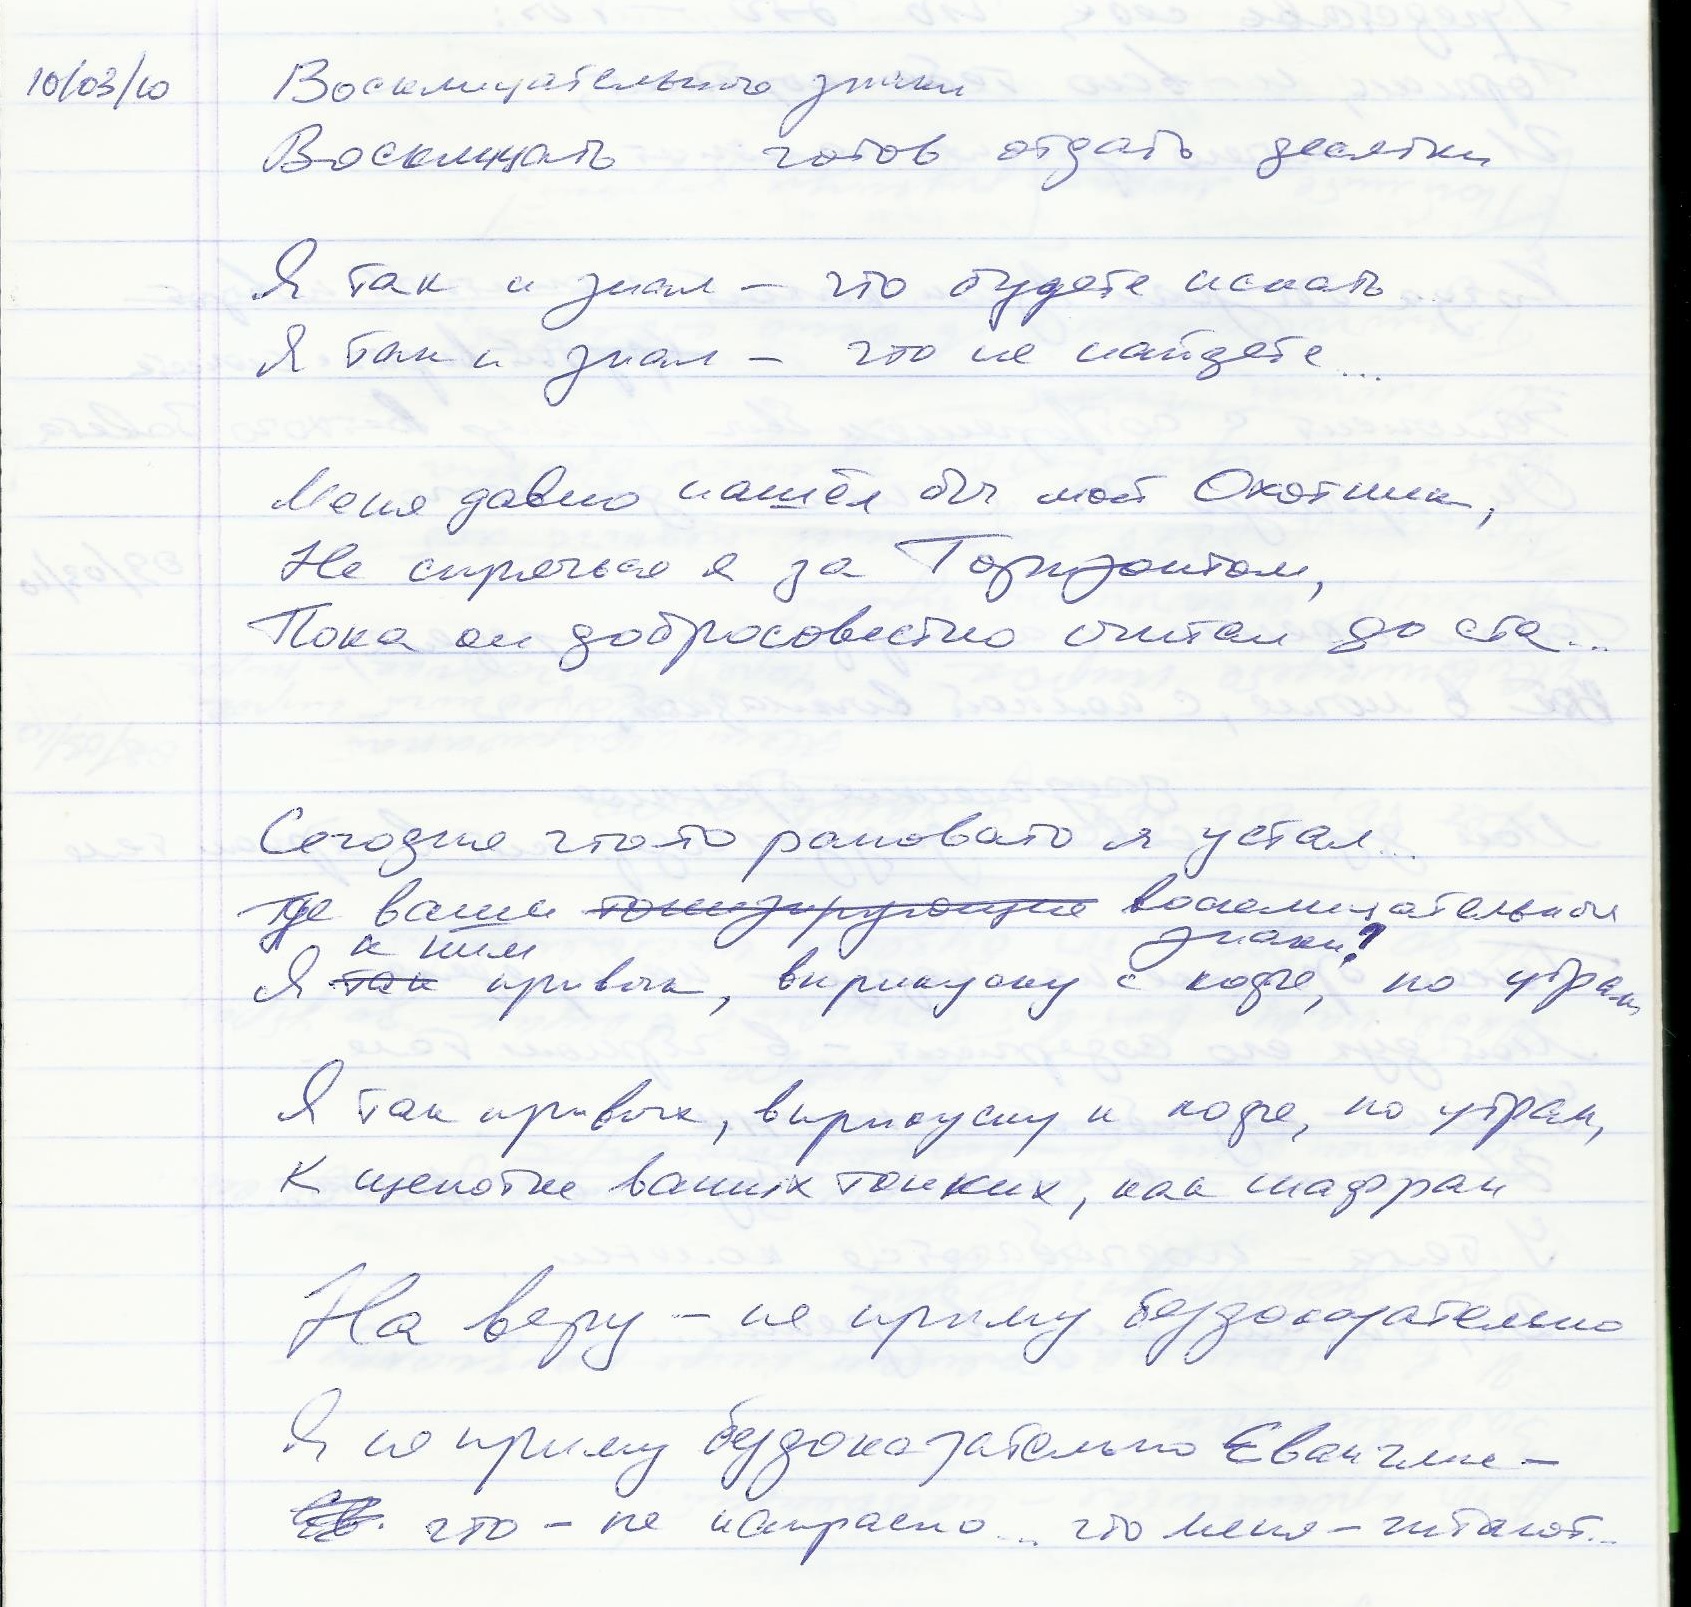 10/03/10
Восклицательного знаки
Восклицать готов отдать десятки
Я так и знал – что будете искать
Я так и знал – что не найдете...
Меня давно нашёл бы мой Охотник,
Не спрячься я за Горизонтом,
Пока он добросовестно считал до ста...
Сегодня что то рановато я устал...
Где ваши тонизирующие восклицательные
знаки?
к ним
Я так привык, вприкуску с кофе, по утрам,
Я так привык, вприкуску к кофе, по утрам,
К щепотке ваших тонких, как шафран
На веру – не приму бездоказательно
Я не приму бездоказательно Евангелие –
что – не напрасно... что меня – читают...